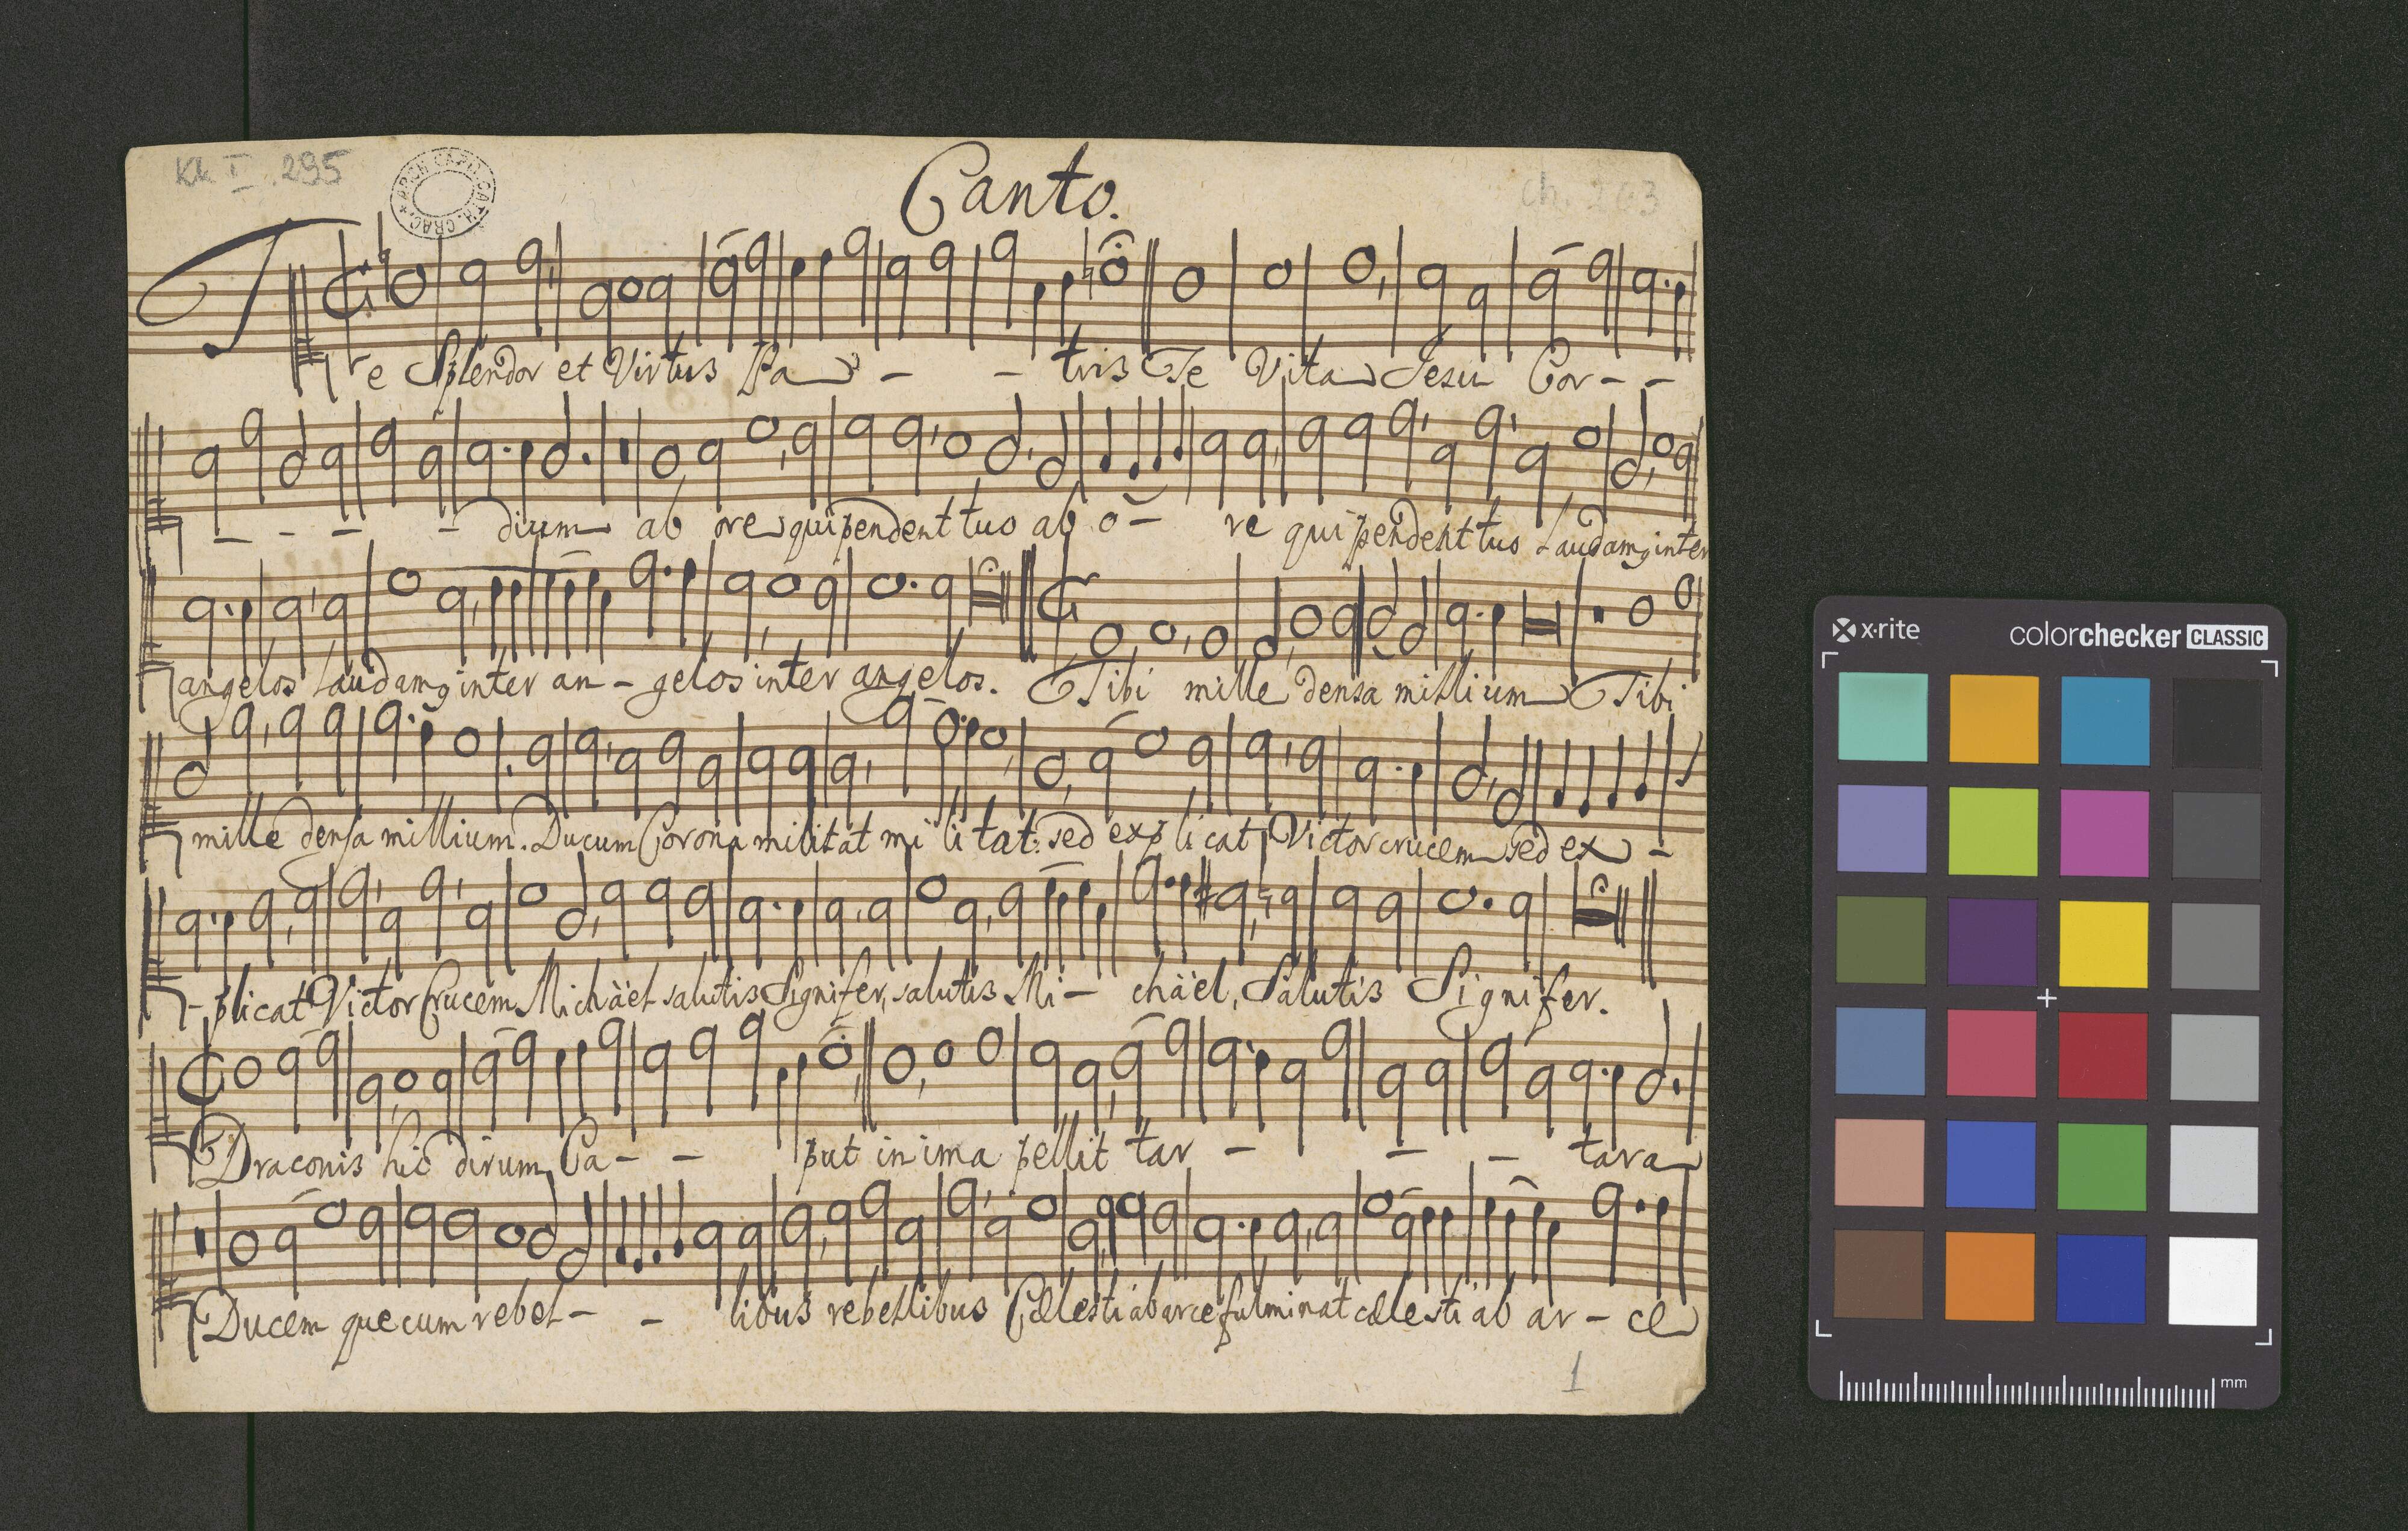 Kk I. 295
ARCH. CAPIT. CATH. CRAC.
Canto.
ch. 203
Te Splendor et Virtus Pa - - tris Te Vita Jesu Cor - -
- - - - dium ab ore qui pendent tuo ab o - re qui pendent tuo Laudam9 inter
angelos Laudam9 inter an - gelos inter angelos. Tibi mille densa millium Tibi
mille densa millium. Ducum Corona militat mi li tat: sed explicat Victor crucem sed ex -
- plicat Victor Crucem Michäel salutis Signifer, salutis Mi - chäel, Salutis Signifer.
Draconis hic dirum Ca - - put in ima pellit tar - - - tara
Ducem que cum rebel - - libus rebellibus Cælesti ab arce fulminat cælesti ab ar - ce
1
x·rite
colorchecker CLASSIC
mm